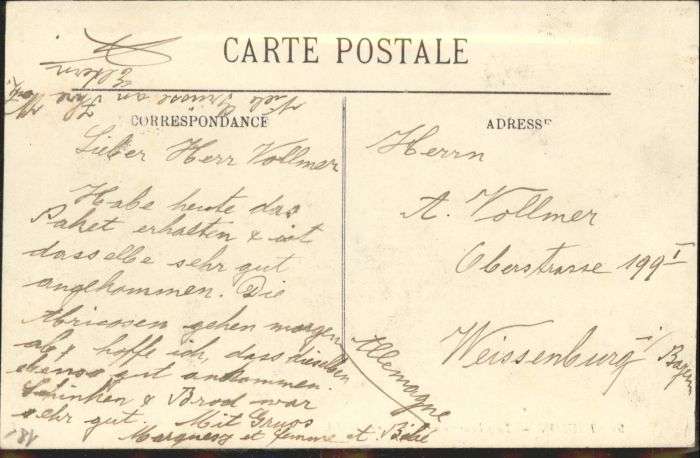 CARTE POSTALE
CORRESPONDANCE
ADRESSE
Lieber Herr Vollmer
Habe heute das
Paket erhalten & ist
dasselbe sehr gut
angekommen. Die
Abricosen gehen morgen
ab & hoffe ich, dass dieselben
ebenso gut ankommen.
Schinken & Brod war
sehr gut. Mit Gruss
et femme et Bébé
Viele Grüsse an Ihre
Eltern
Herrn
A. Vollmer
Oberstrasse 199 I
Weissenburg i/Bayern
Allemagne